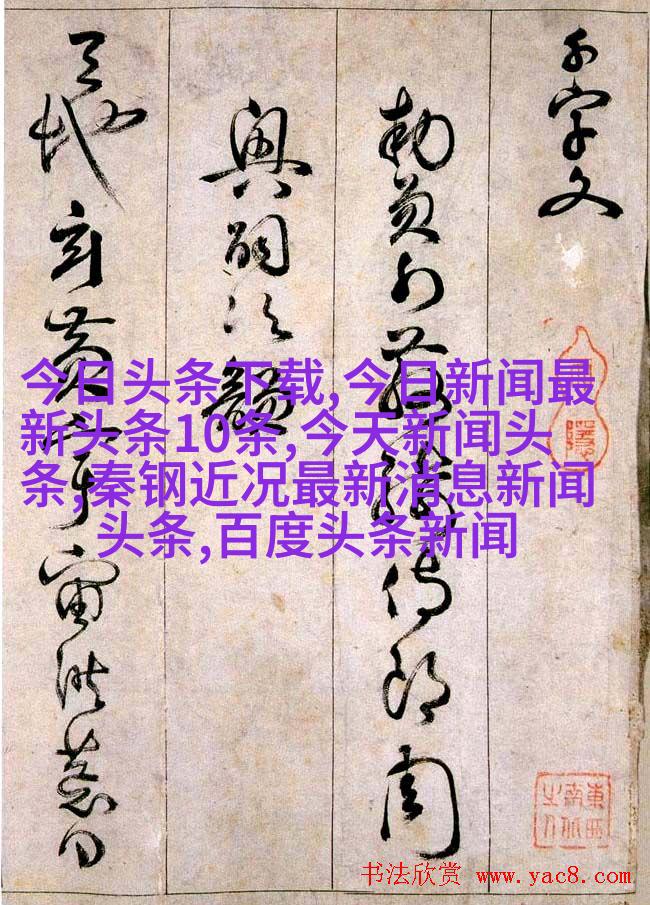 千字文
勅員外散騎侍郎周
興嗣次韻
天地玄黃宇宙洪荒日
今日头条下载,今日新闻最
新头条10条,今天新闻头
条,秦钢近况最新消息新闻
头条,百度头条新闻
東西
南北
之人
书法欣赏 www.yac8.com